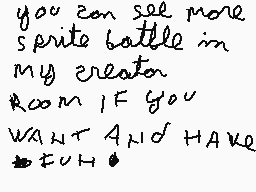 you can see more
sprite battle in
my creator
ROOM IF YOU
WANT AND HAVE
FUN